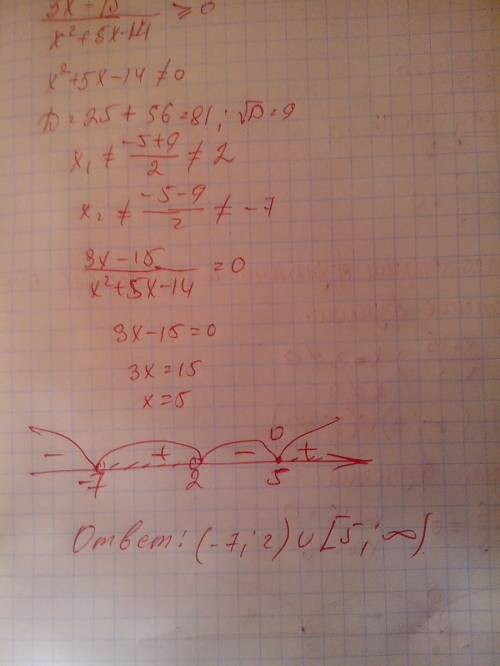 (3x-15)/(x²+5x-14) ≥ 0
x²+5x-14≠0
D=25+56=81; √D=9
x₁ ≠ (-5+9)/2 ≠ 2
x₂ ≠ (-5-9)/2 ≠ -7
(3x-15)/(x²+5x-14) = 0
3x-15=0
3x=15
x=5
- + - 0 +
-7 2 5
Ответ: (-7; 2) ∪ [5; ∞)